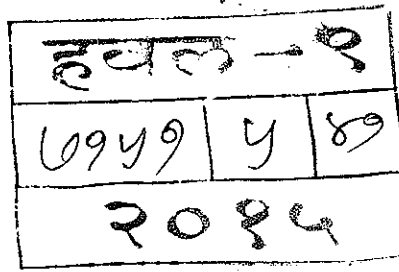 हवल - १
७१५१ ५ ४१
२०१५